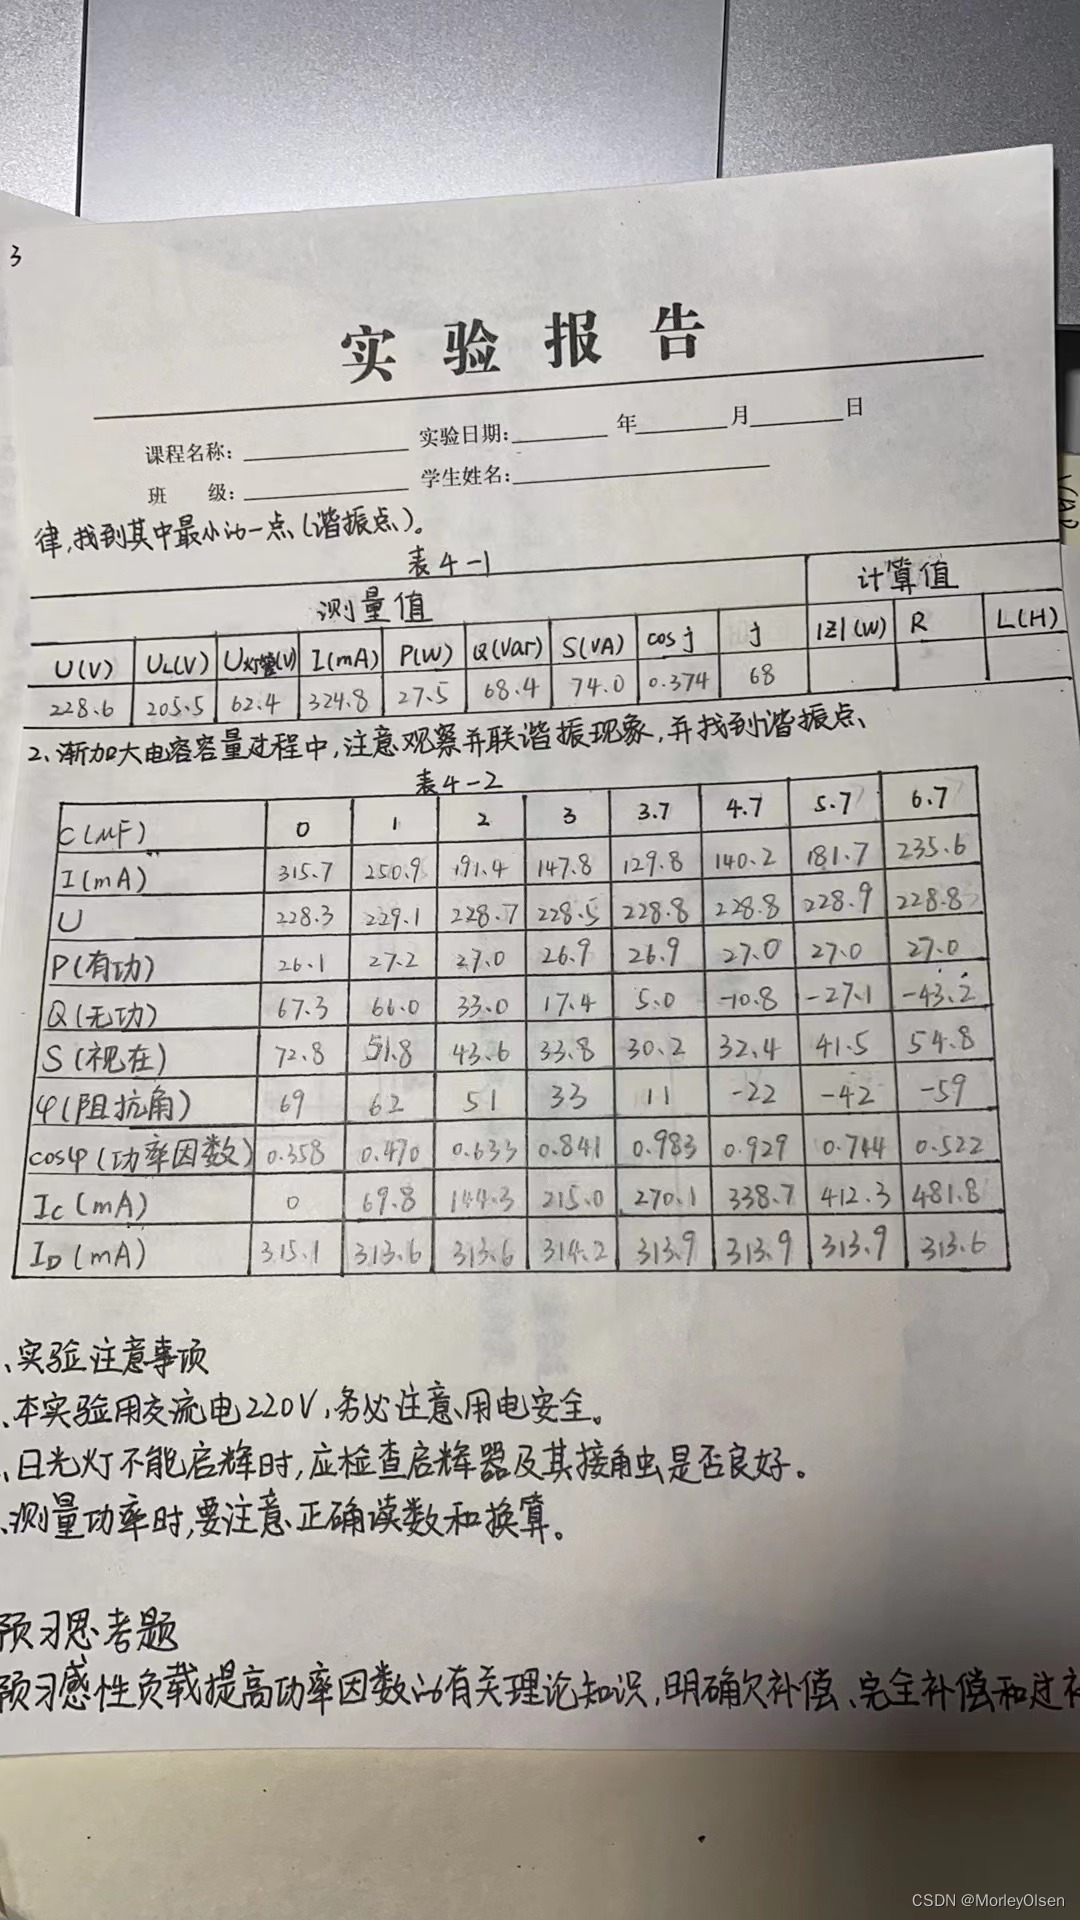 3
实验报告
课程名称: 实验日期: 年 月 日
班 级: 学生姓名:
律,找到其中最小的一点(谐振点)。
表4-1
测量值 计算值
U(V) UL(V) U灯管(V) I(mA) P(W) Q(Var) S(VA) cosj j |Z|(W) R L(H)
228.6 205.5 62.4 324.8 27.5 68.4 74.0 0.374 68
2、渐加大电容容量过程中,注意观察并联谐振现象,并找到谐振点、
表4-2
C(μF) 0 1 2 3 3.7 4.7 5.7 6.7
I(mA) 315.7 250.9 191.4 147.8 129.8 140.2 181.7 235.6
U 228.3 229.1 228.7 228.5 228.8 228.8 228.9 228.8
P(有功) 26.1 27.2 27.0 26.9 26.9 27.0 27.0 27.0
Q(无功) 67.3 66.0 33.0 17.4 5.0 -10.8 -27.1 -43.2
S(视在) 72.8 51.8 43.6 33.8 30.2 32.4 41.5 54.8
φ(阻抗角) 69 62 51 33 11 -22 -42 -59
cosφ(功率因数) 0.358 0.470 0.633 0.841 0.983 0.929 0.744 0.522
Ic(mA) 0 69.8 144.3 215.0 270.1 338.7 412.3 481.8
ID(mA) 315.1 313.6 313.6 314.2 313.9 313.9 313.9 313.6
、实验注意事项
、本实验用交流电220V,务必注意用电安全。
、日光灯不能启辉时,应检查启辉器及其接触是否良好。
、测量功率时,要注意正确读数和换算。
预习思考题
预习感性负载提高功率因数的有关理论知识,明确欠补偿、完全补偿和过补
CSDN @MorleyOlsen